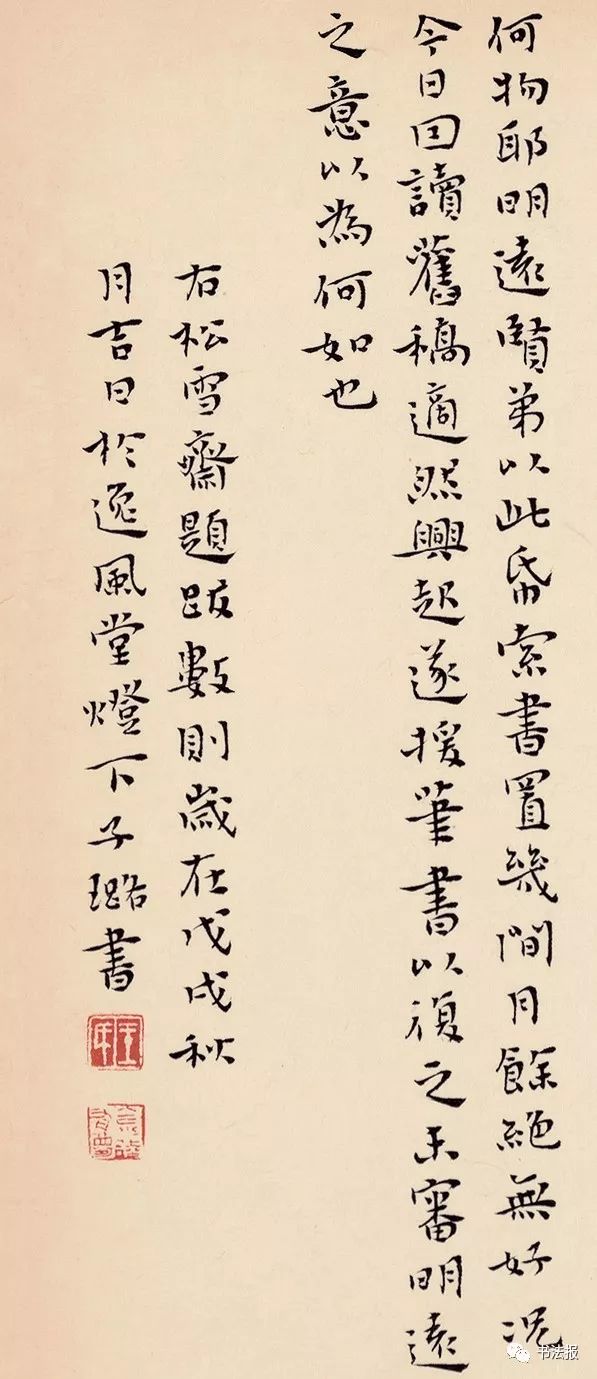 何物耶明遠賢弟以此帋索書置幾間月餘絕無好況
今日回讀舊稿適然興起遂援筆書以復之未審明遠
之意以為何如也
右松雪齋題跋數則歲在戊戌秋
月吉日於逸風堂燈下子璐書
书法报